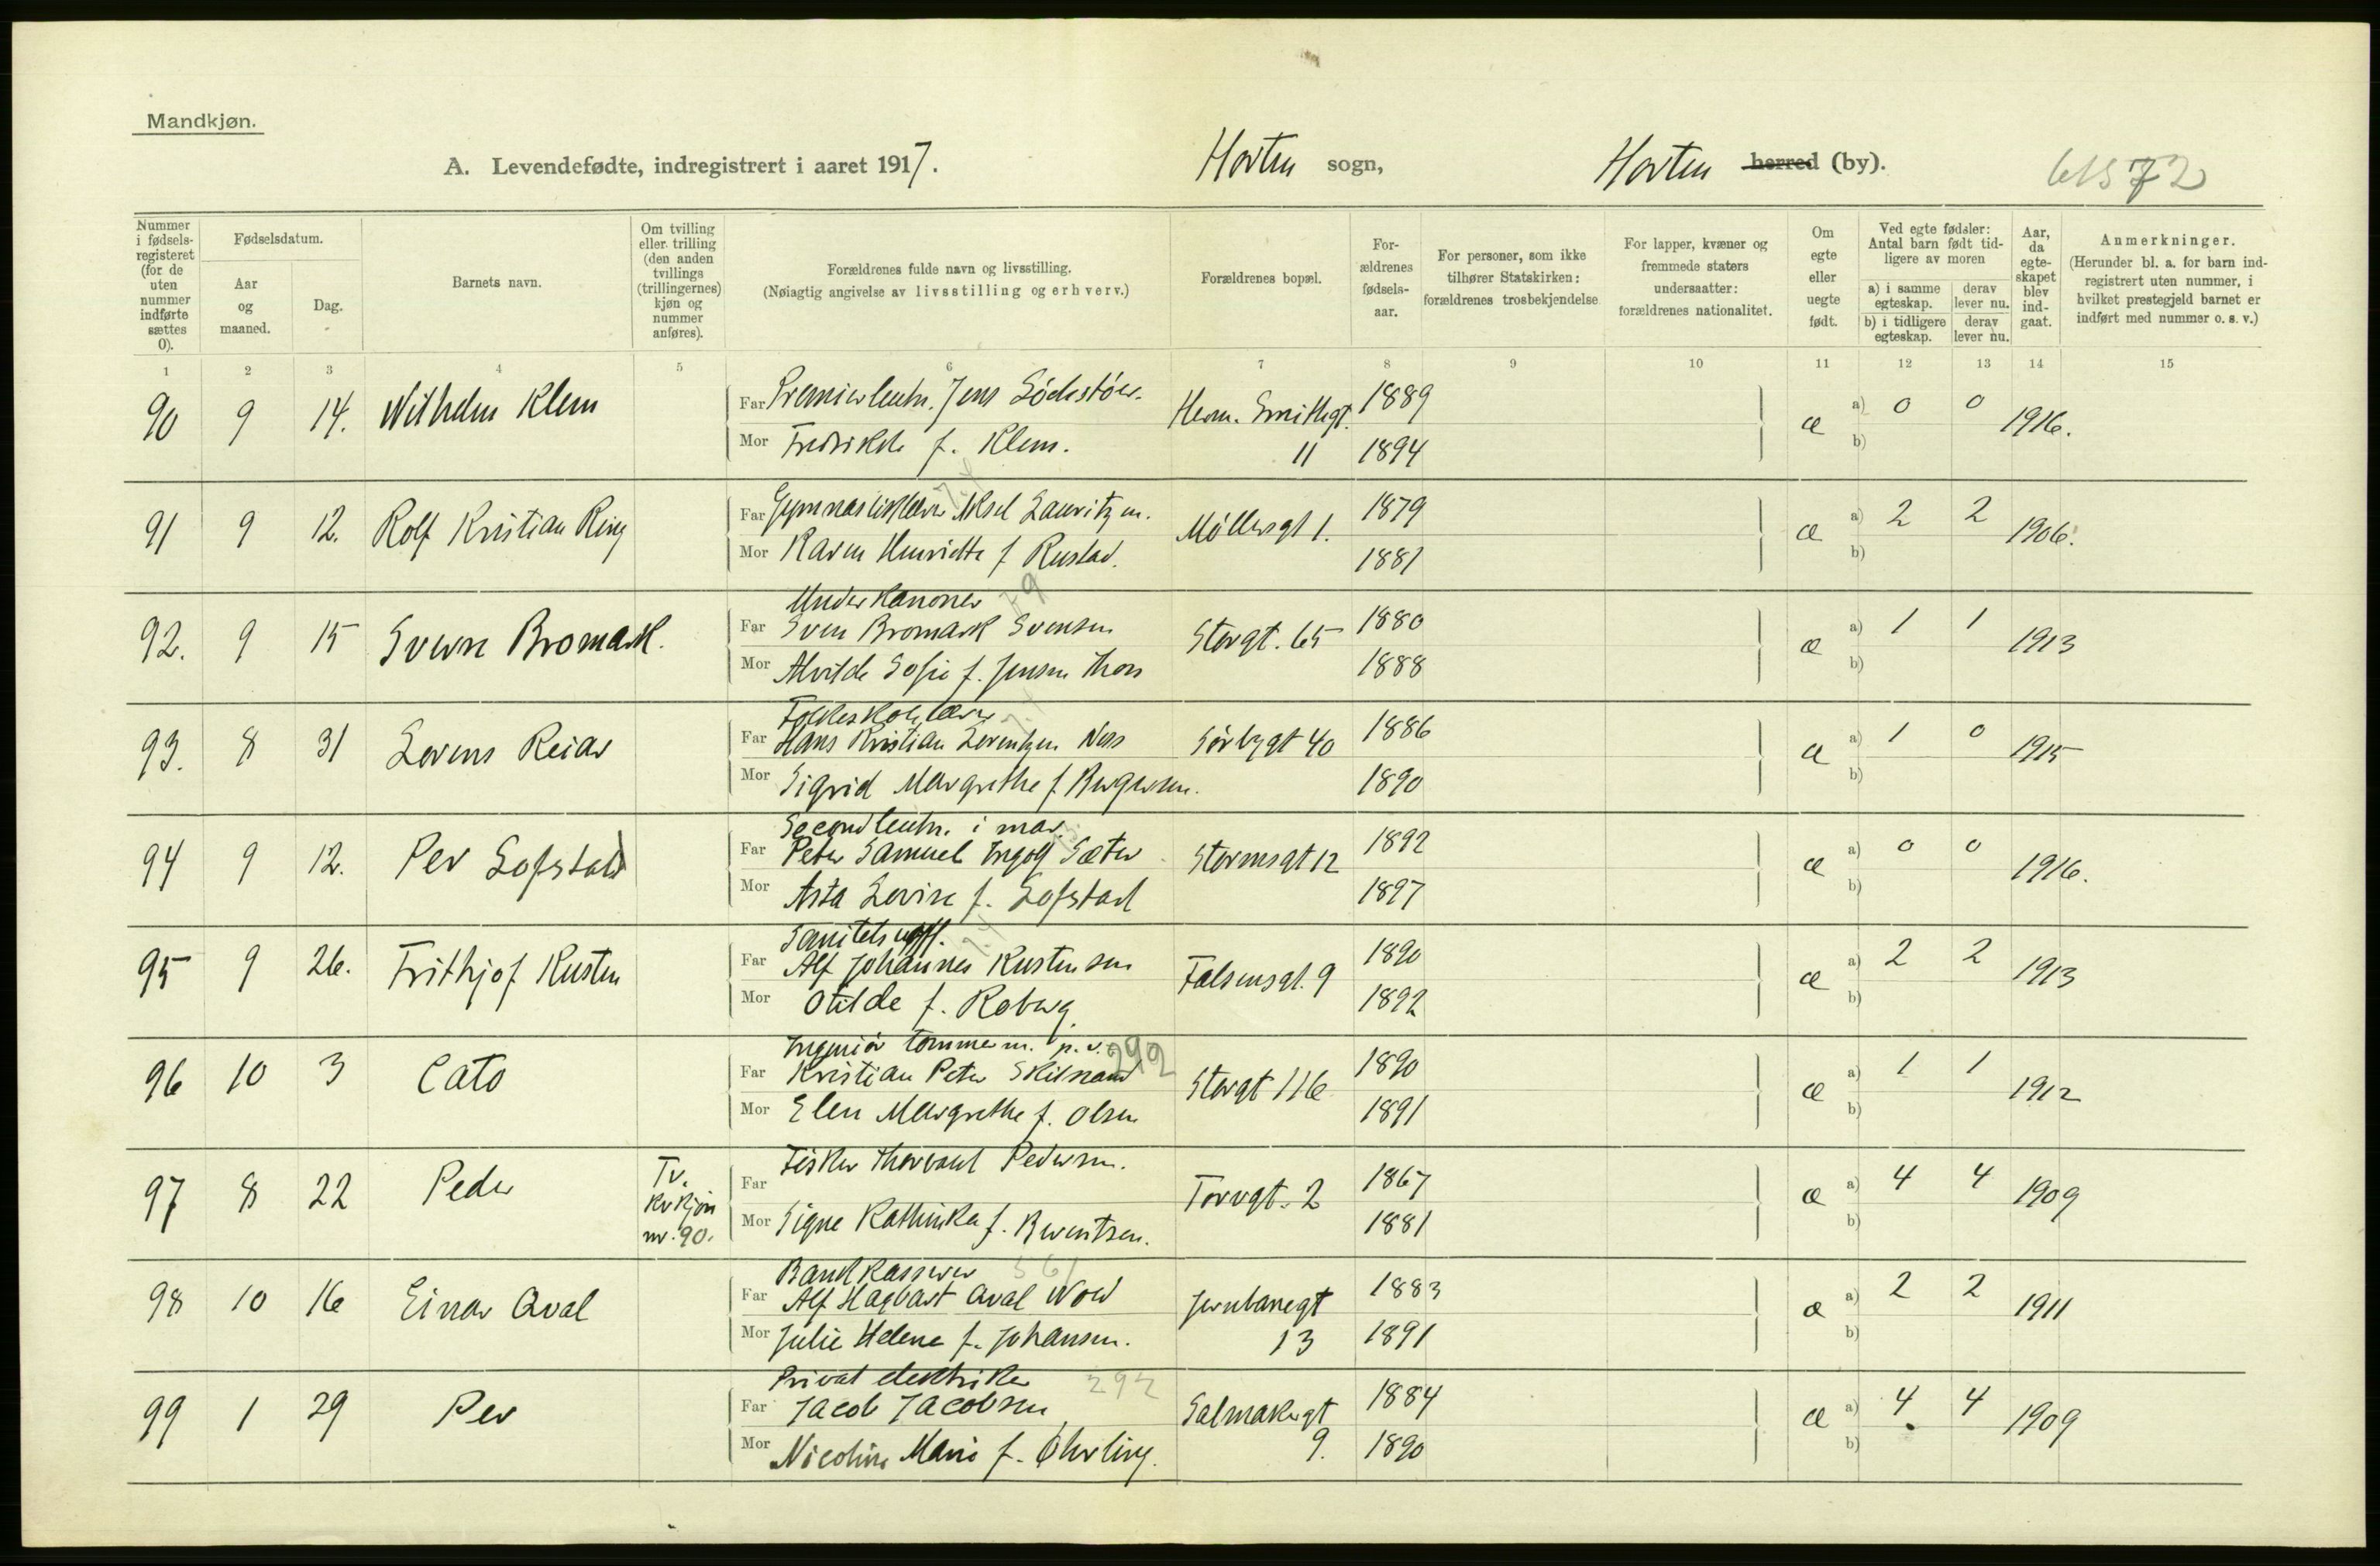 Mandkjøn.
A. Levendefødte, indregistrert i aaret 1917. Horten sogn, Horten herred (by).
Nummer i fødselsregisteret (for de uten nummer indførte sættes 0).
Fødselsdatum.
Aar og maaned.
Dag.
Barnets navn.
Om tvilling eller trilling (den anden tvillings (trillingernes) kjøn og nummer anføres).
Forældrenes fulde navn og livsstilling.
(Nøiagtig angivelse av livsstilling og erhverv.)
Forældrenes bopæl.
Forældrenes fødselsaar.
For personer, som ikke tilhører Statskirken: forældrenes trosbekjendelse
For lapper, kvæner og fremmede staters undersaatter: forældrenes nationalitet.
Om egte eller uegte født.
Ved egte fødsler: Antal barn født tidligere av moren
a) i samme egteskap.
derav lever nu.
b) i tidligere egteskap.
derav lever nu.
Aar, da egteskapet blev indgaat.
Anmerkninger.
(Herunder bl. a. for barn indregistrert uten nummer, i hvilket prestegjeld barnet er indført med nummer o. s. v.)
1 2 3 4 5 6 7 8 9 10 11 12 13 14 15
90 9 14. Wilhelm Klem Far Premierleutn. Jens Herm. Smithsgt. 1889 æ a) 0 0 1916.
Mor Fredrikke f. Klem. 11 1894 b)
91 9 12. Rolf Kristian Ring Far Gymnastiklærer Aksel Lauritzen. Møllergt 1. 1879 æ a) 2 2 1906.
Mor Karen Henriette f Rustad. 1881 b)
Underkanoner
92. 9 15 Sverre Bromark. Far Sven Bromark Svensen Storgt. 65 1880 æ a) 1 1 1913
Mor Alvilde Sofie f. Jensen Thon 1888 b)
Folkeskolelærer
93. 8 31 Lorens Reidar Far Hans Kristian Lorentzen Næss Sørbygt 40 1886 æ a) 1 0 1915
Mor Sigrid Margrethe f. Bergersen. 1890 b)
Secondleutn. i mar.
94 9 12. Per Lofstad Far Peter Samuel Ingolf Sæter Stormsgt 12 1892 æ a) 0 0 1916.
Mor Asta Lovise f. Lofstad 1897 b)
Sanitets uoff.
95 9 26. Frithjof Kusten Far Alf Johannes Kustensen Falsensgt. 9 1890 æ a) 2 2 1913
Mor Otilde f. Roberg 1892 b)
Ingeniør tømmerm. p. v. 292
96 10 3 Cato Far Kristian Peter Skilnand Storgt 116 1890 æ a) 1 1 1912
Mor Elen Margrethe f. Olsen 1891 b)
97 8 22 Peder Tv. Kvkjøn nr. 90. Far Fisker Thorvald Pedersen. Torvgt. 2 1867 æ a) 4 4 1909
Mor Signe Kathinka f. Berentsen. 1881 b)
Bankkasserer
98 10 16 Einar Aval Far Alf Hagbart Aval Wold Jernbanegt 1883 æ a) 2 2 1911
Mor Julie Helene f. Johansen. 13 1891 b)
Privat elektriker 292
99 1 29 Per Far Jacob Jacobsen Salmakergt 1884 æ a) 4 4 1909
Mor Nicoline Marie f. Øhrling. 9. 1890 b)